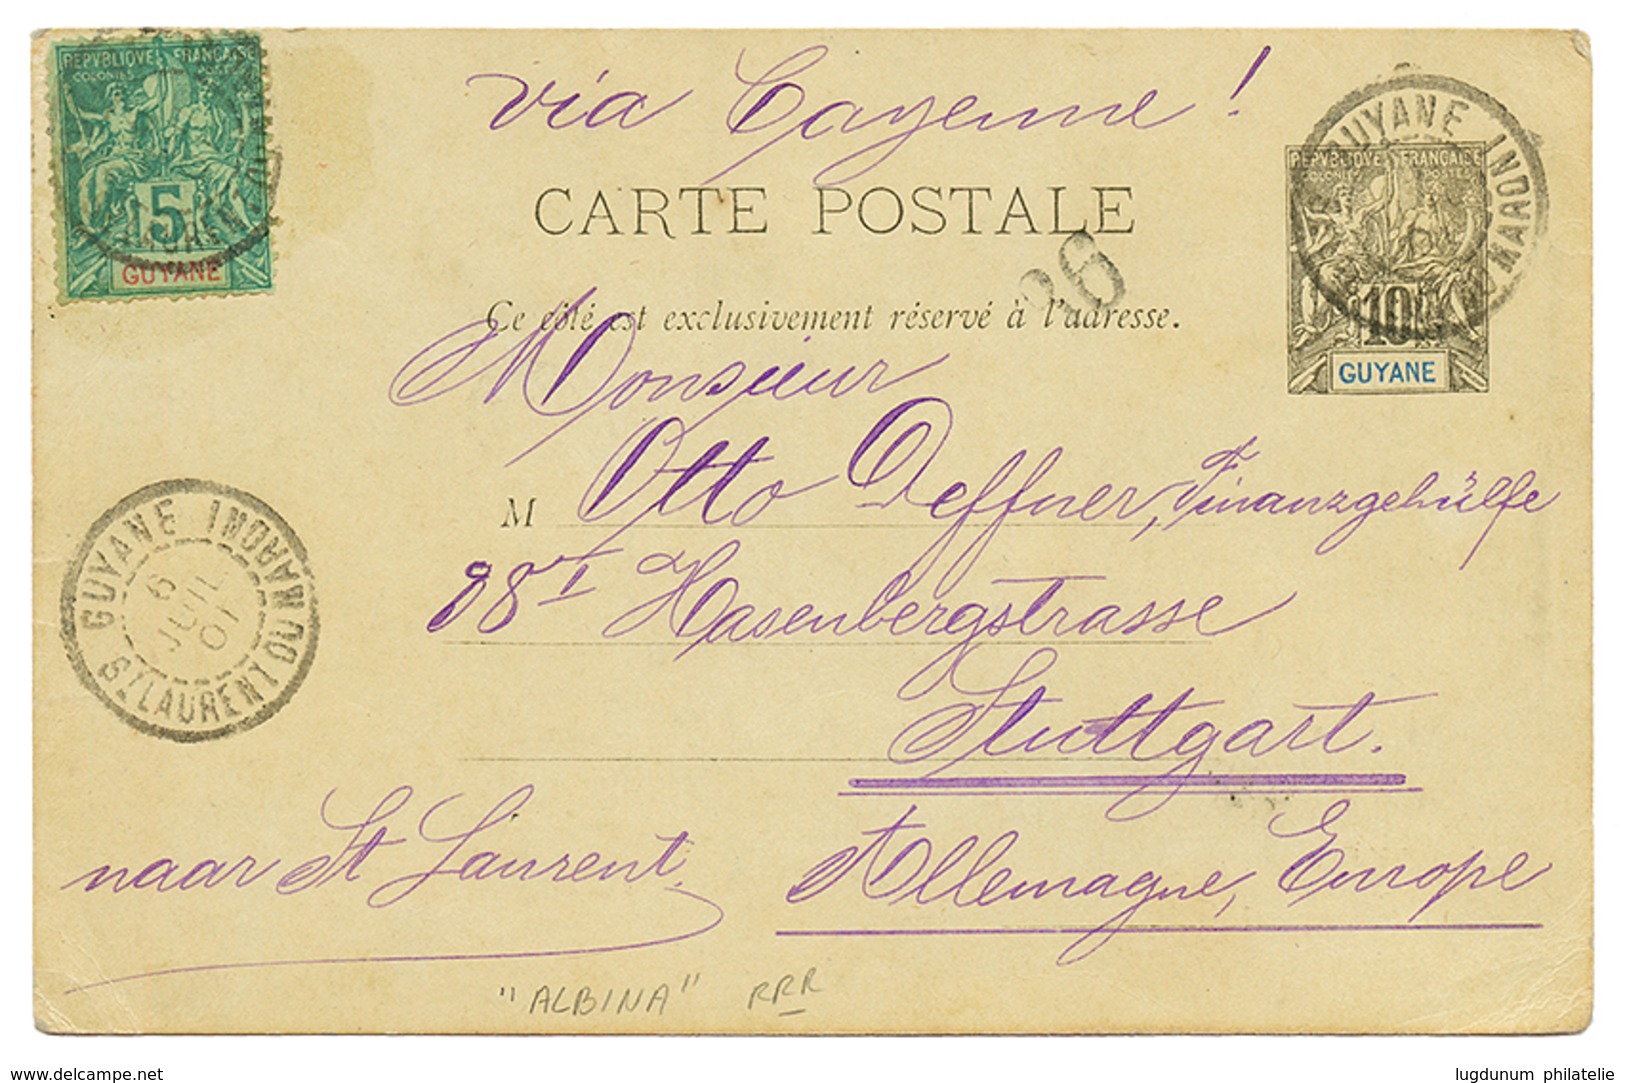 via Cayenne !
REPVBLIQVE FRANÇAISE
COLONIES POSTES
5
GUYANE
GUYANE INDO MARONI
REPVBLIQVE FRANÇAISE
COLONIES POSTES
10
GUYANE
CARTE POSTALE
26
Ce côté est exclusivement réservé à l'adresse.
Monsieur
M Otto Deffner, Finanzgehülfe
88 I Hasenbergstrasse
Stuttgart.
Allemagne, Europe
GUYANE
ST LAURENT DU MARONI
6
JUIL
01
naar St Laurent.
"ALBINA" RRR
www.delcampe.net
lugdunum philatelie